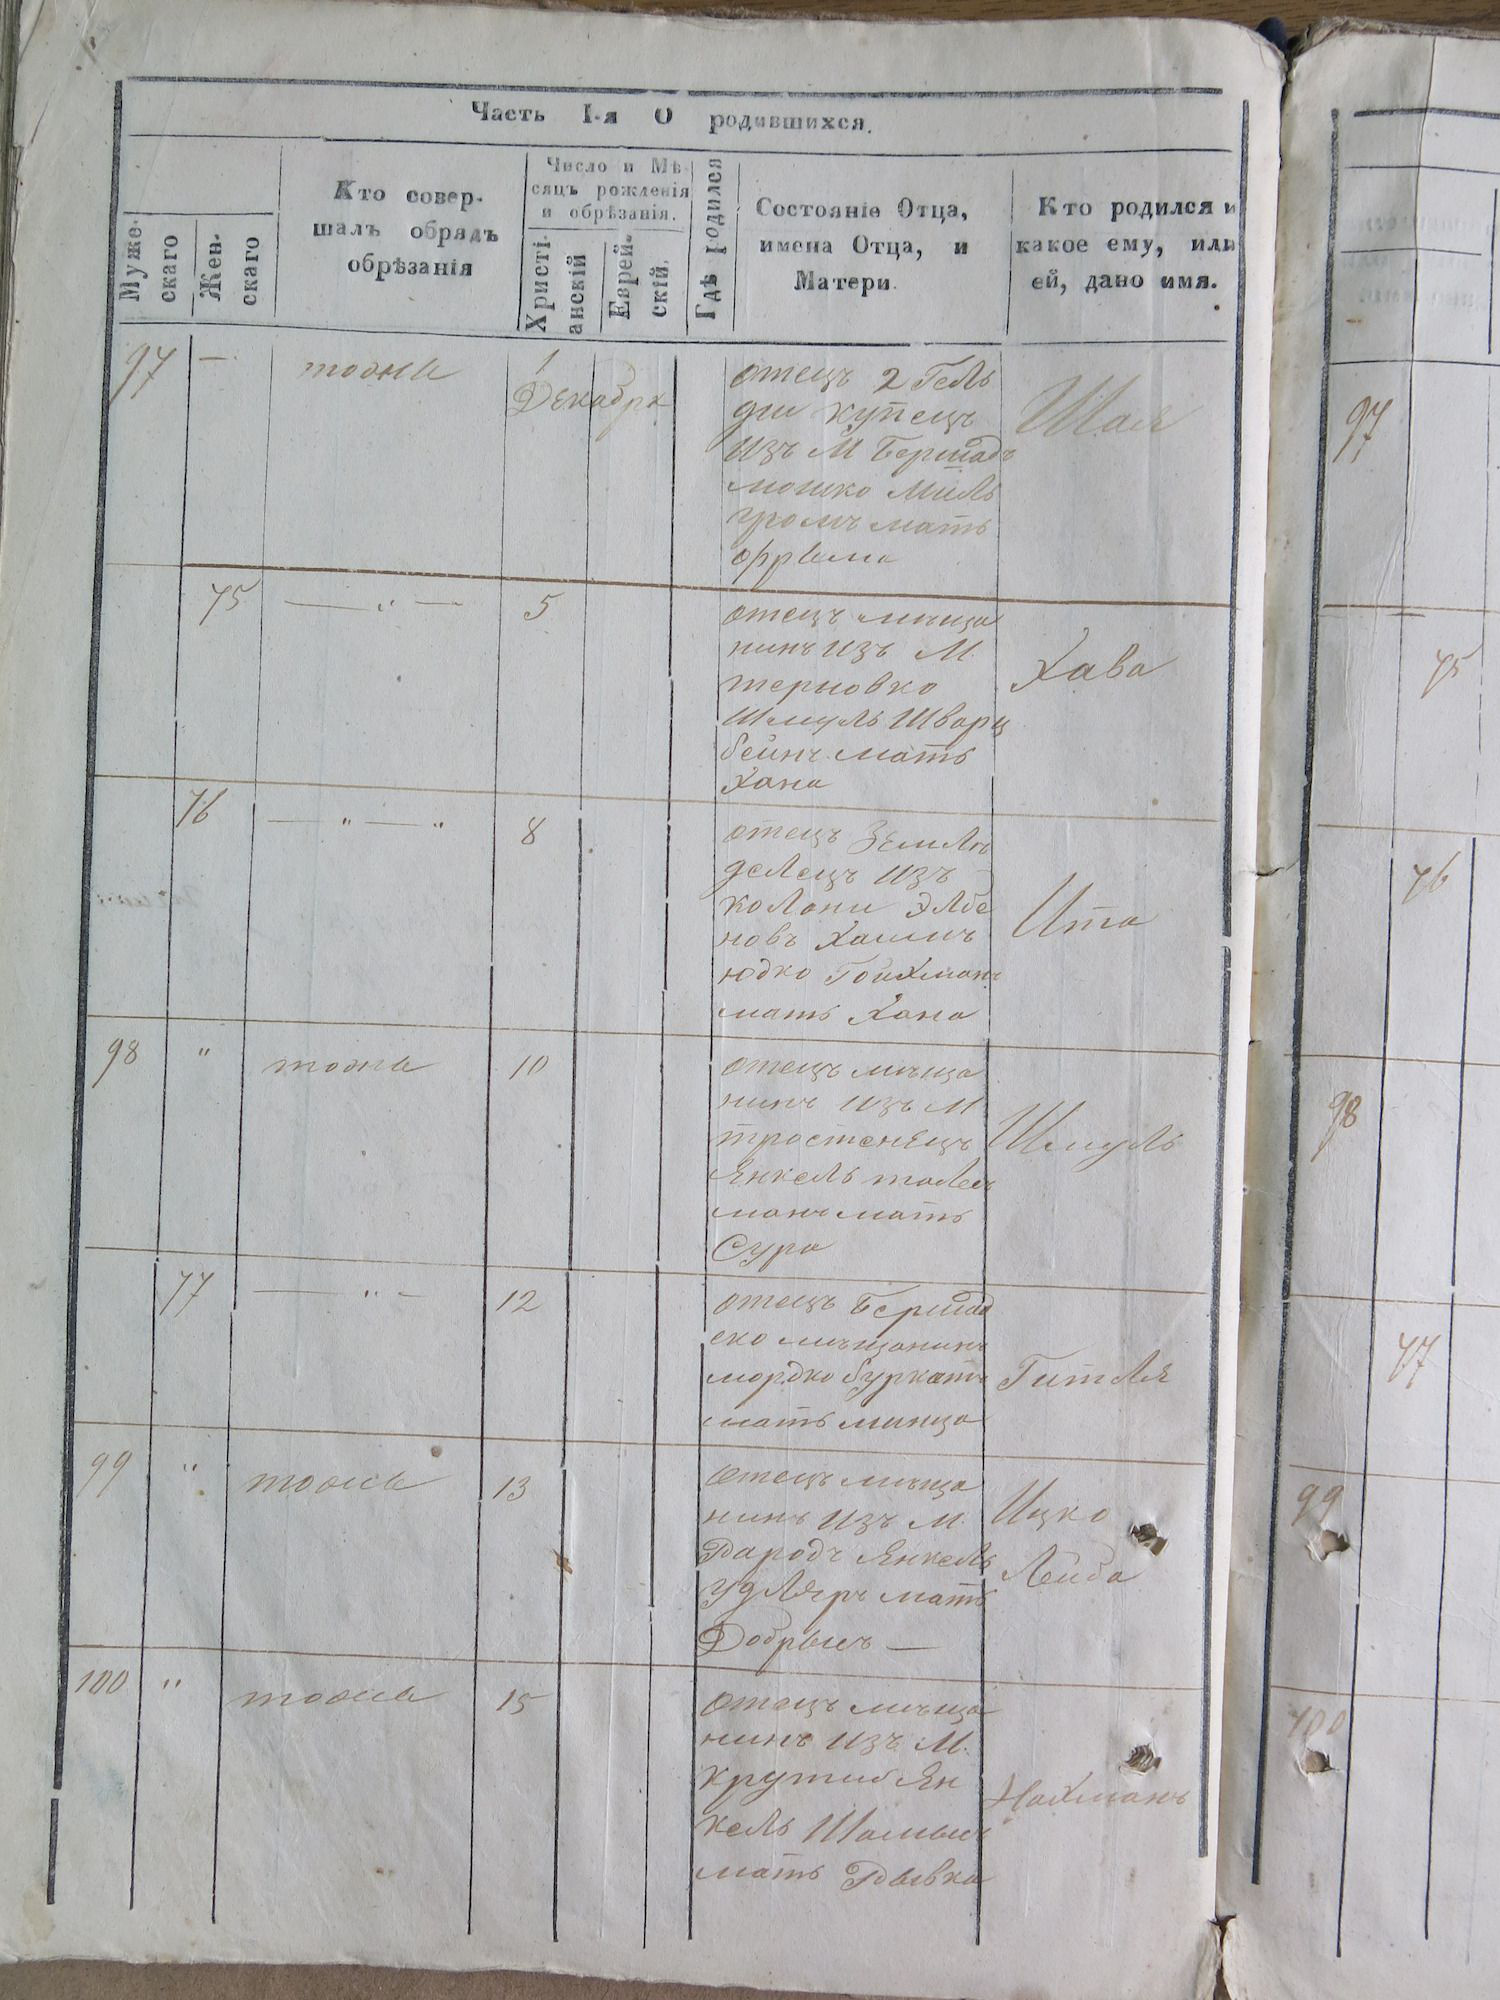 Часть I-я О родившихся.
Муже-
скаго
Жен-
скаго
Кто совер-
шалъ обрядъ
обрѣзанія
Число и Мѣ-
сяцъ рожденія
и обрѣзанія.
Христі-
анскій
Еврей-
скій.
Гдѣ родился
Состояніе Отца,
имена Отца, и
Матери
Кто родился и
какое ему, или
ей, дано имя.
97 —
тоже
1
Декабря
отецъ 2 Гель
ди купецъ
изъ М Бершадъ
мошко Миль
громъ мать
Шая
97
75 — " —
5
отецъ мѣща
нинъ изъ М.
терновко
Шмуль Шварц
бейнъ мать
Хана
Хава
75
76 — " — "
8
отецъ Землѣ
делецъ изъ
колони
новъ
юдко Гойхманъ
мать Хана
Ита
76
98 "
тоже
10
отецъ мѣща
нинъ изъ М
тростенецъ
Янкель
манъ мать
Сура
Шмуль
98
77 — " —
12
отецъ Бершад
ско мѣщанинъ
мордко буркатъ
мать минца
Гитля
77
99 "
тоже
13
отецъ мѣща
нинъ изъ М.
Янкель
удлеръ мать
Добрысъ —
Ицко
Лейба
99
100 "
тоже
15
отецъ мѣща
нинъ изъ М.
крутие Ян
кель
мать Рывка
Нахманъ
100